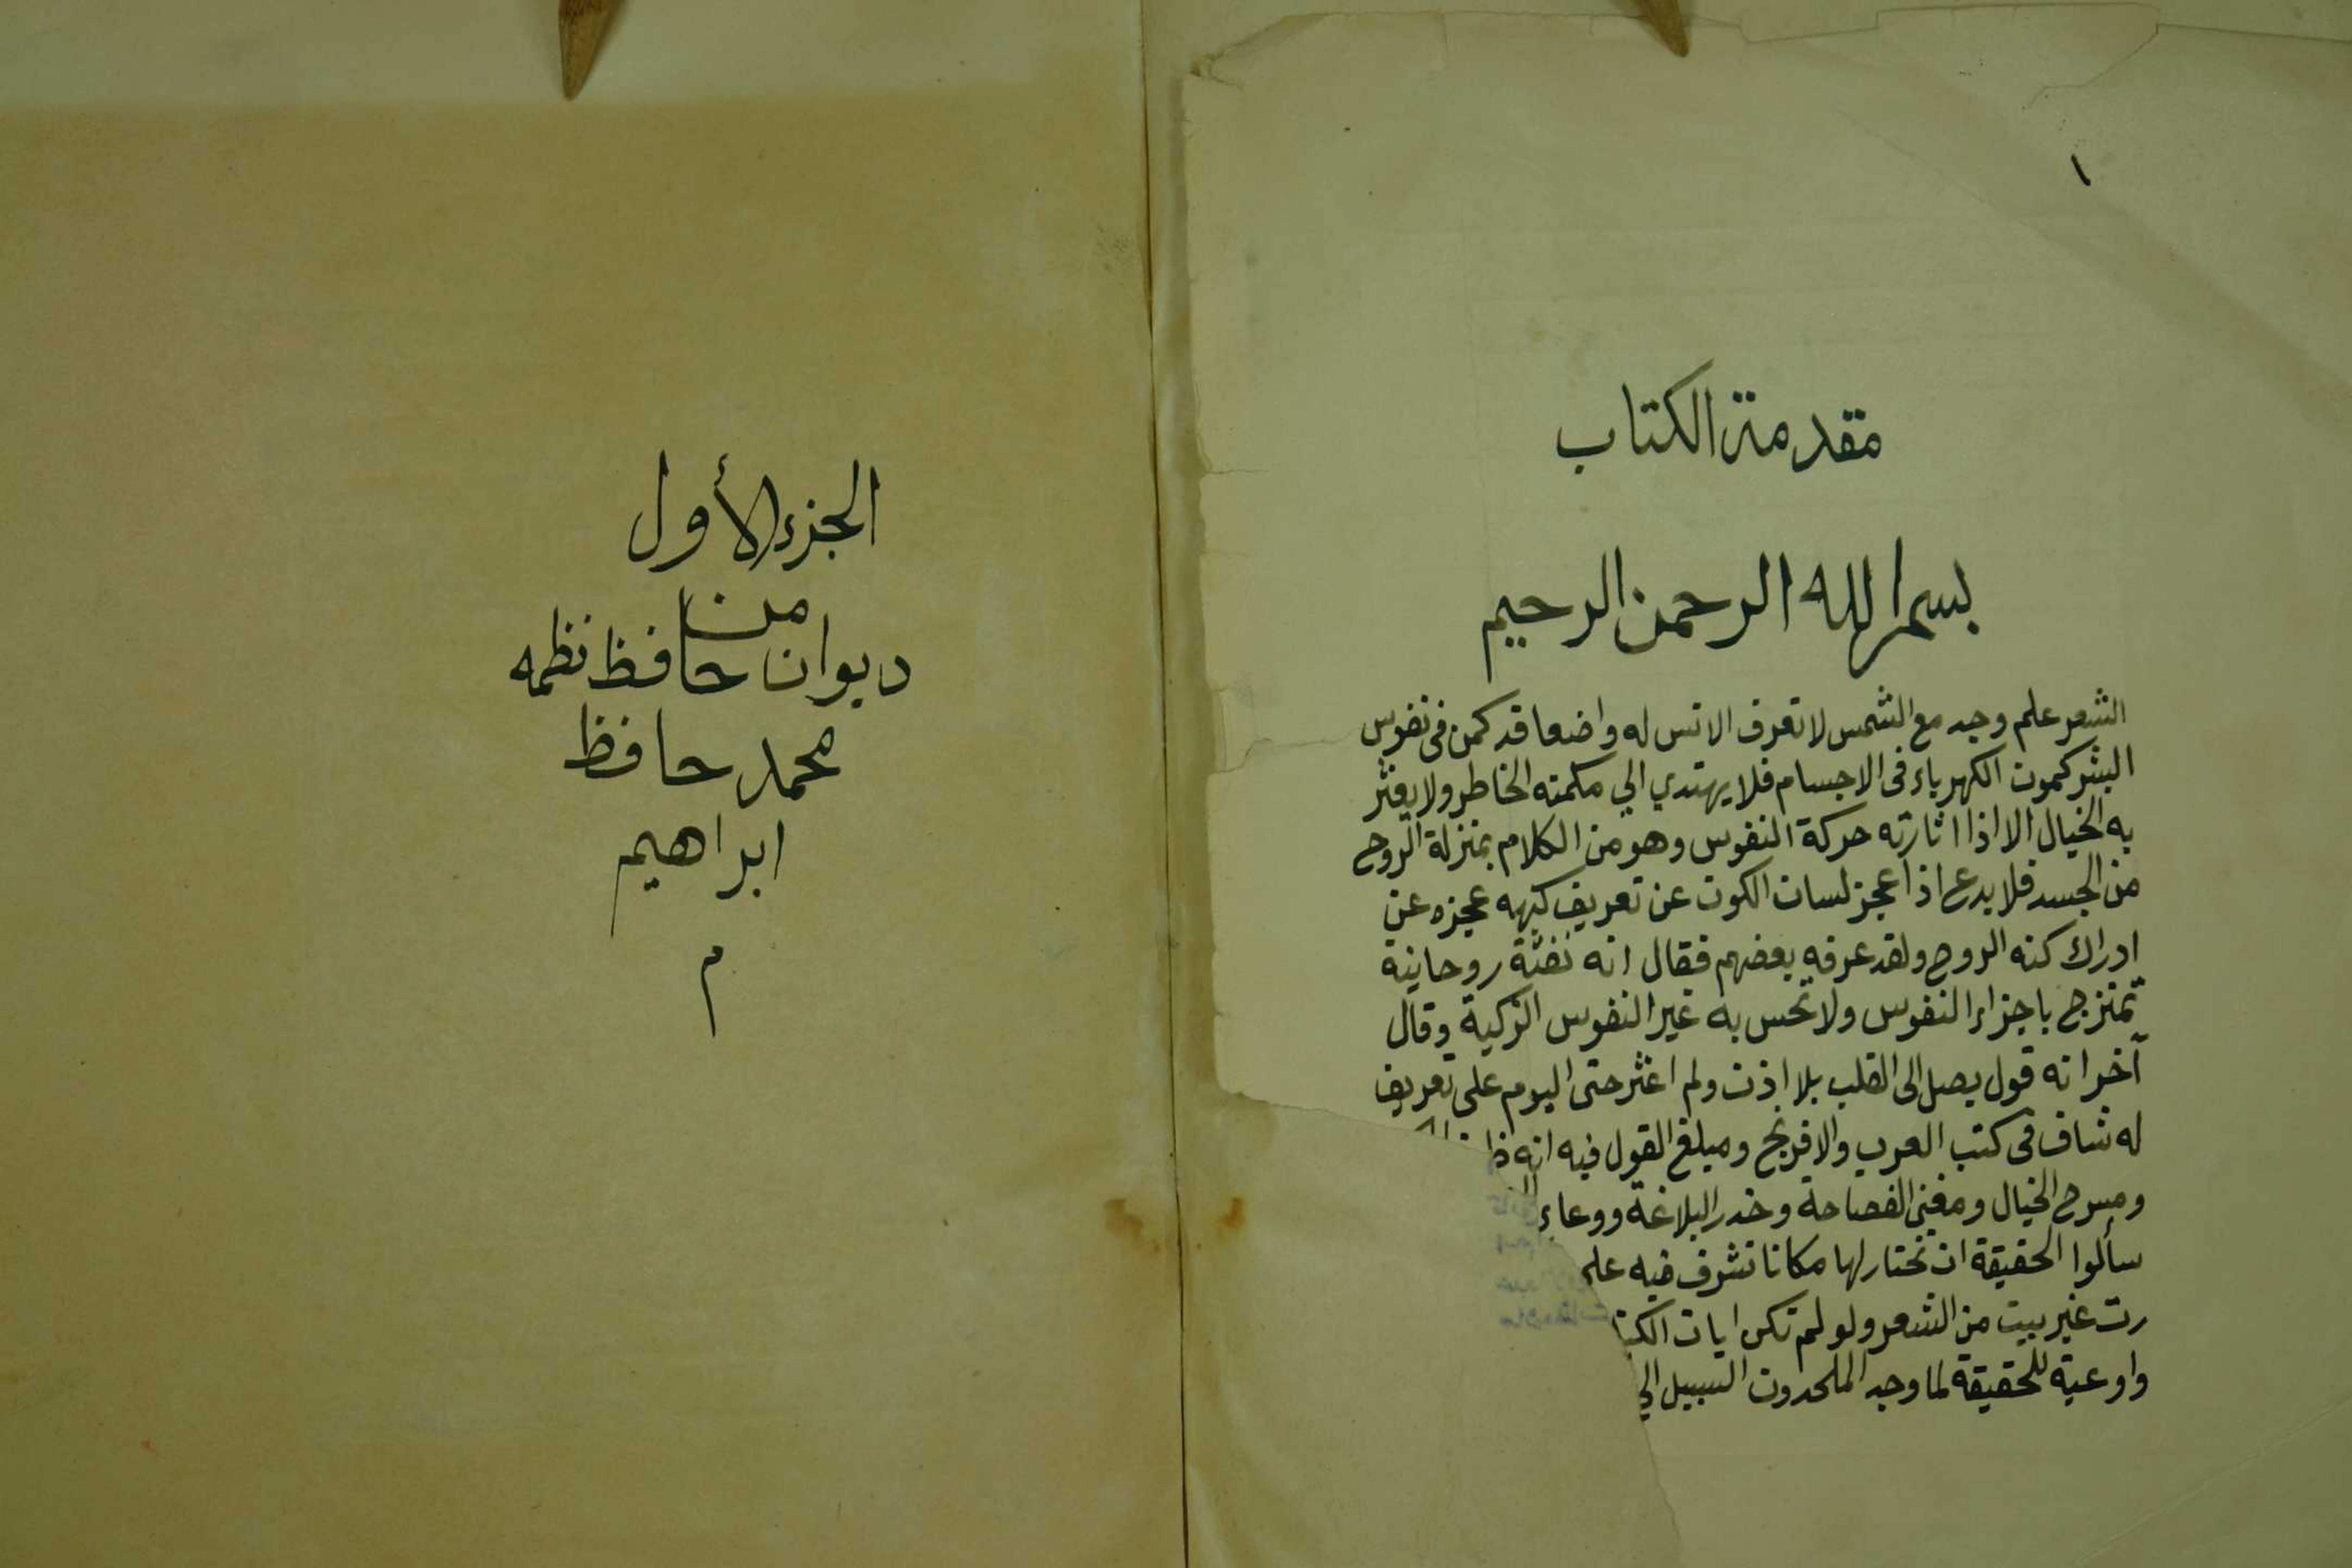 ١
مقدمة الكتاب
بسم الله الرحمن الرحيم
الشعر علم وجد مع الشمس لا تعرف الانس له واضعا قد كمن فى نفوس
البشر كمون الكهرباء فى الاجسام فلا يهتدي الي مكمنه الخاطر ولا يعثر
به الخيال الا اذا اثارته حركة النفوس وهو من الكلام بمنزلة الروح
من الجسد فلا بدع اذا عجز لسان الكون عن تعريف كنهه عجزه عن
ادراك كنه الروح ولقد عرفه بعضهم فقال انه نفثة روحانية
تمتزج باجزاء النفوس ولا تحس به غير النفوس الزكية وقال
آخر انه قول يصل الى القلب بلا اذن ولم اعثر حتى اليوم علي تعريف
له شاف فى كتب العرب والافرنج ومبلغ القول فيه انه
ومسرح الخيال ومغنى الفصاحة وخدر البلاغة ووعاء
سألوا الحقيقة ان تختار لها مكانا تشرف فيه علي
رت غير بيت من الشعر ولو لم تكن ايات الكتا
واوعية للحقيقة لما وجد الملحدون السبيل الي
الجزء الأول
من
ديوان حافظ نظمه
محمد حافظ
ابراهيم
م